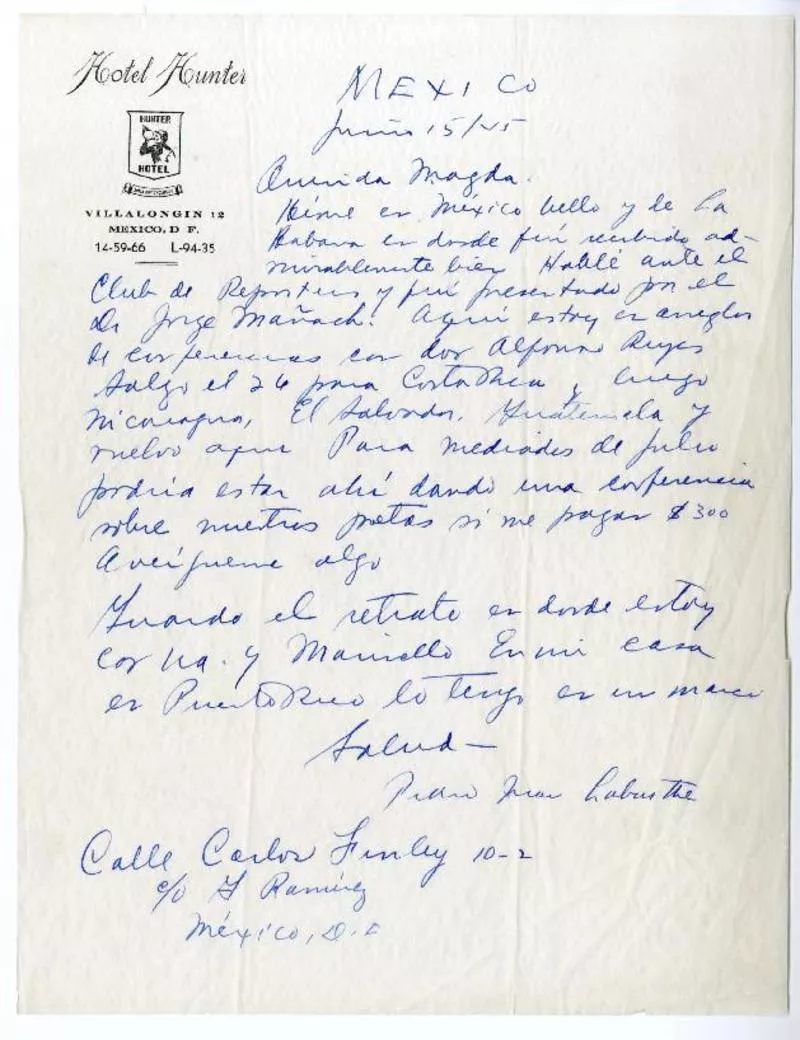 Hotel Hunter
HUNTER
HOTEL
VILLALONGIN 12
MEXICO, D F.
14-59-66 L-94-35
MEXICO
Junio 15/45
Querida Magda.
Héme en México bello y de La
Habana en donde fuí recibido ad-
mirablemente bien Hablé ante el
Club de Reporters y fuí presentado por el
Dr Jorge Mañach. Aquí estoy en arreglos
de conferencias con don Alfonso Reyes
Salgo el 26 para Costa Rica y luego
Nicaragua, El Salvador, Guatemala y
vuelvo aquí Para mediados de julio
podría estar ahí dando una conferencia
sobre nuestros poetas si me pagan $300
Averígueme algo
Guardo el retrato en donde estoy
con Ud. y Marcello En mi casa
en Puerto Rico lo tengo en un marco
Salud—
Pedro Juan Labarthe
Calle Carlos Finley 10-2
c/o G Ramírez
México, D. F